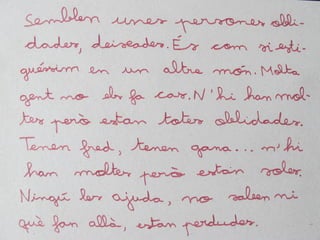 Semblen unes persones obli-
dades, deixades. És com si esti-
guéssim en un altre món. Molta
gent no els fa cas. N'hi han mol-
tes però estan totes oblidades.
Tenen fred, tenen gana... n'hi
han moltes però estan soles.
Ningú les ajuda, no saben ni
què fan allà, estan perdudes.